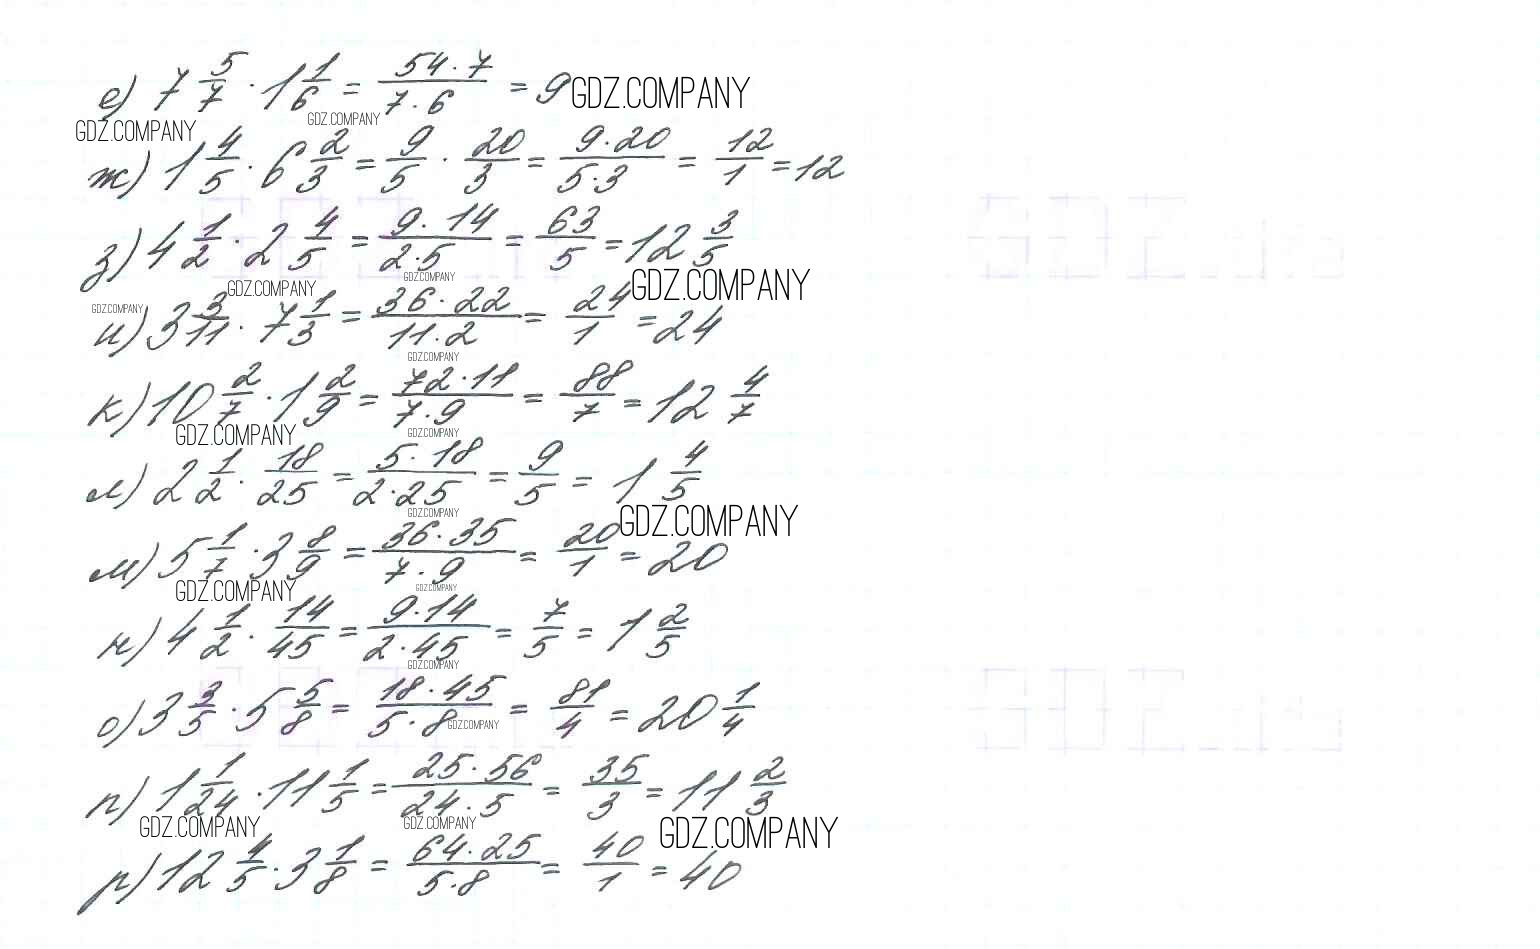 е) 7 5/7 · 1 1/6 = 54·7/7·6 = 9 GDZ.COMPANY
GDZ.COMPANY GDZ.COMPANY
ж) 1 4/5 · 6 2/3 = 9/5 · 20/3 = 9·20/5·3 = 12/1 = 12
з) 4 1/2 · 2 4/5 = 9·14/2·5 = 63/5 = 12 3/5
GDZ.COMPANY GDZ.COMPANY GDZ.COMPANY
GDZ.COMPANY
и) 3 3/11 · 7 1/3 = 36·22/11·2 = 24/1 = 24
GDZ.COMPANY
к) 10 2/7 · 1 2/9 = 72·11/7·9 = 88/7 = 12 4/7
GDZ.COMPANY GDZ.COMPANY
л) 2 1/2 · 18/25 = 5·18/2·25 = 9/5 = 1 4/5
GDZ.COMPANY GDZ.COMPANY
м) 5 1/7 · 3 8/9 = 36·35/7·9 = 20/1 = 20
GDZ.COMPANY GDZ.COMPANY
н) 4 1/2 · 14/45 = 9·14/2·45 = 7/5 = 1 2/5
GDZ.COMPANY
о) 3 3/5 · 5 5/8 = 18·45/5·8 = 81/4 = 20 1/4
GDZ.COMPANY
п) 1 1/24 · 11 1/5 = 25·56/24·5 = 35/3 = 11 2/3
GDZ.COMPANY GDZ.COMPANY GDZ.COMPANY
р) 12 4/5 · 3 1/8 = 64·25/5·8 = 40/1 = 40